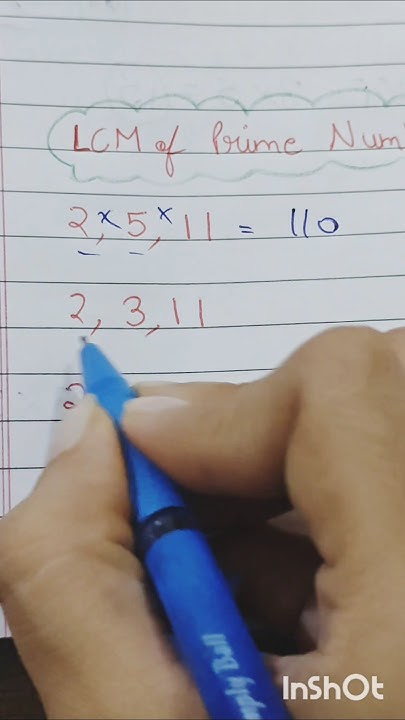 LCM of Prime Num
2, × 5, × 11 = 110
2, 3, 11
2
InShOt